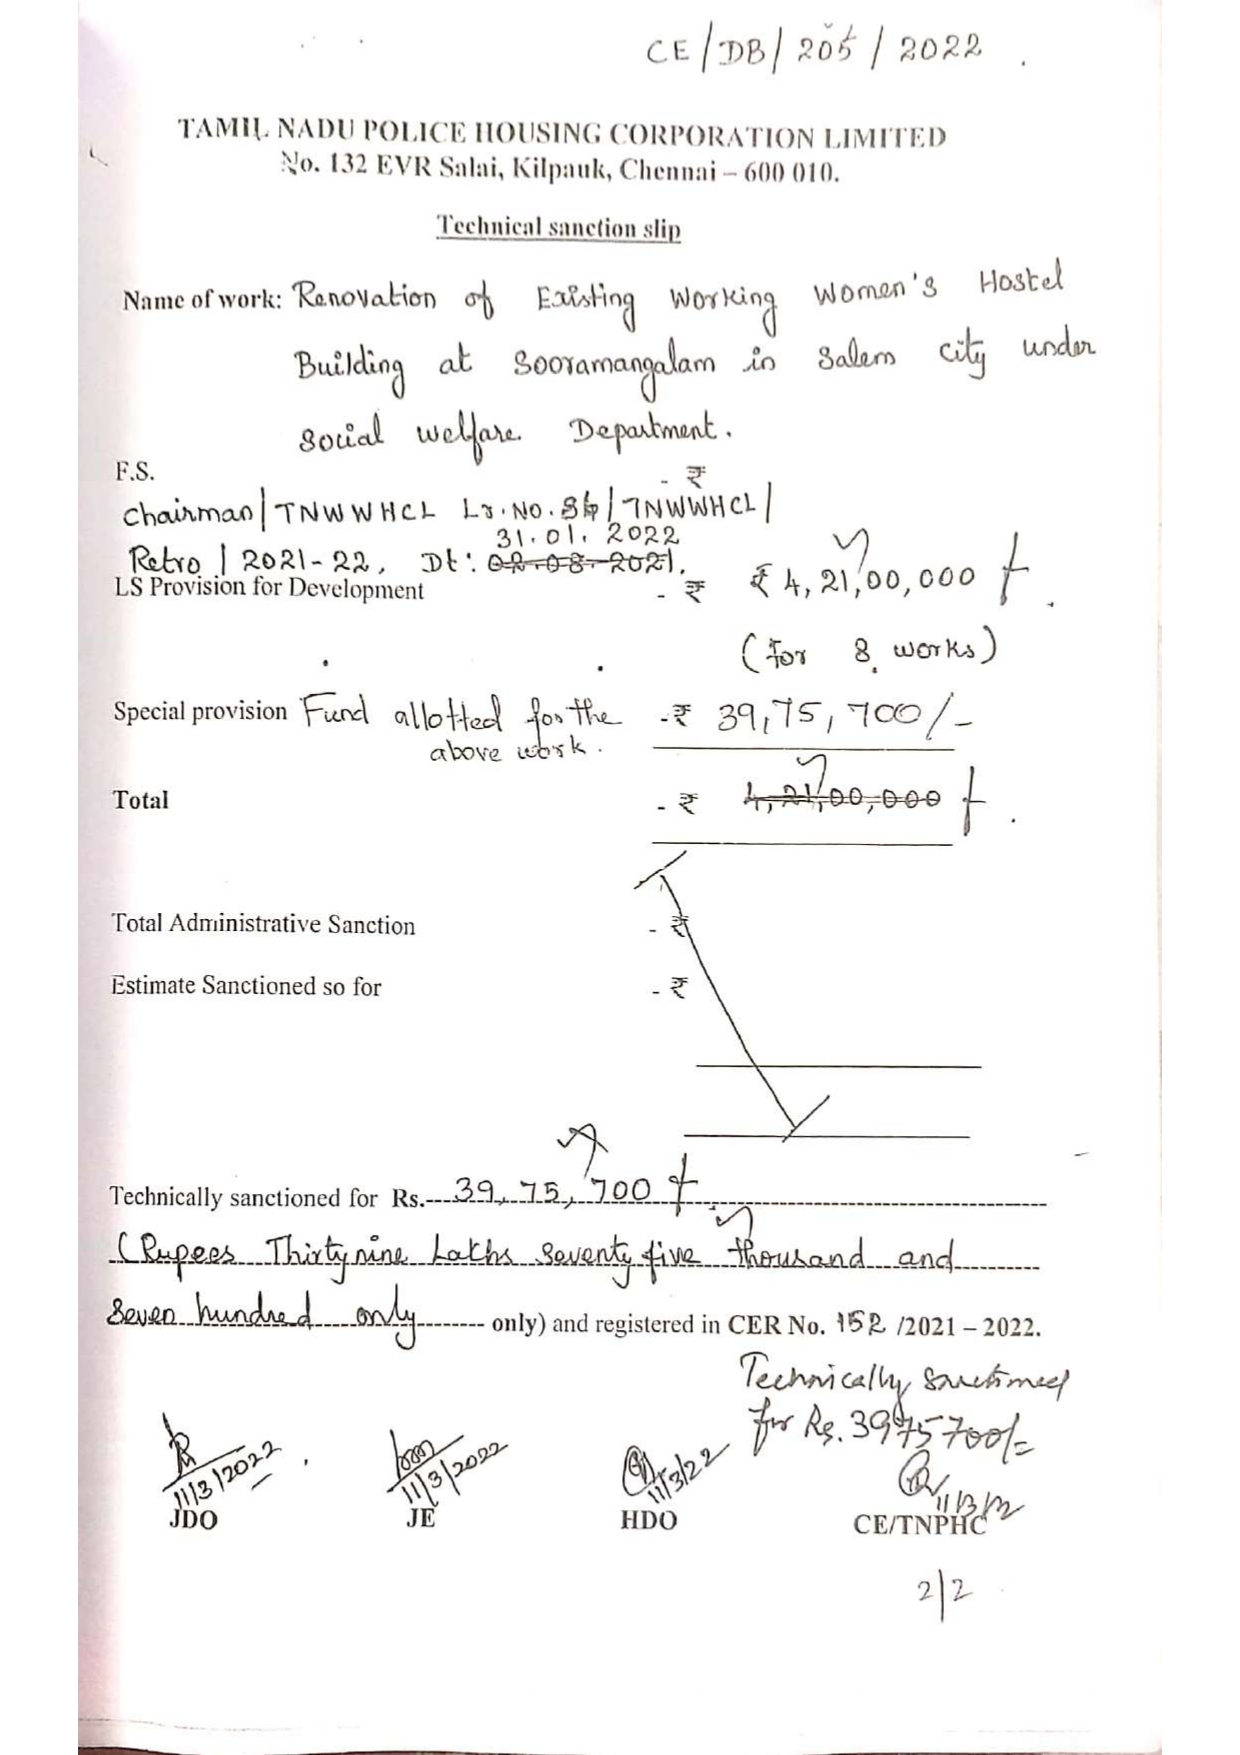 CE/DB/205/2022
TAMIL NADU POLICE HOUSING CORPORATION LIMITED
No. 132 EVR Salai, Kilpauk, Chennai – 600 010.
Technical sanction slip
Name of work: Renovation of Existing Working Women's Hostel
Building at Sooramangalam in Salem city under
Social welfare Department.
F.S. - ₹
Chairman/TNWWHCL Lr.No. /TNWWHCL/
31.01.2022
Retro/2021-22, Dt: 02.08.2021.
LS Provision for Development - ₹ ₹ 4,21,00,000/-
(for 8 works)
Special provision Fund allotted for the - ₹ 39,75,700/-
above work.
Total - ₹ 4,21,00,000/-
Total Administrative Sanction - ₹
Estimate Sanctioned so for - ₹
Technically sanctioned for Rs. 39,75,700/-
(Rupees Thirty nine Lakhs Seventy five thousand and
Seven hundred only only) and registered in CER No. 152 /2021 – 2022.
Technically Sanctioned
for Rs. 3975700/=
11/3/2022 11/3/2022 11/3/22 11/3/22
JDO JE HDO CE/TNPHC
2/2